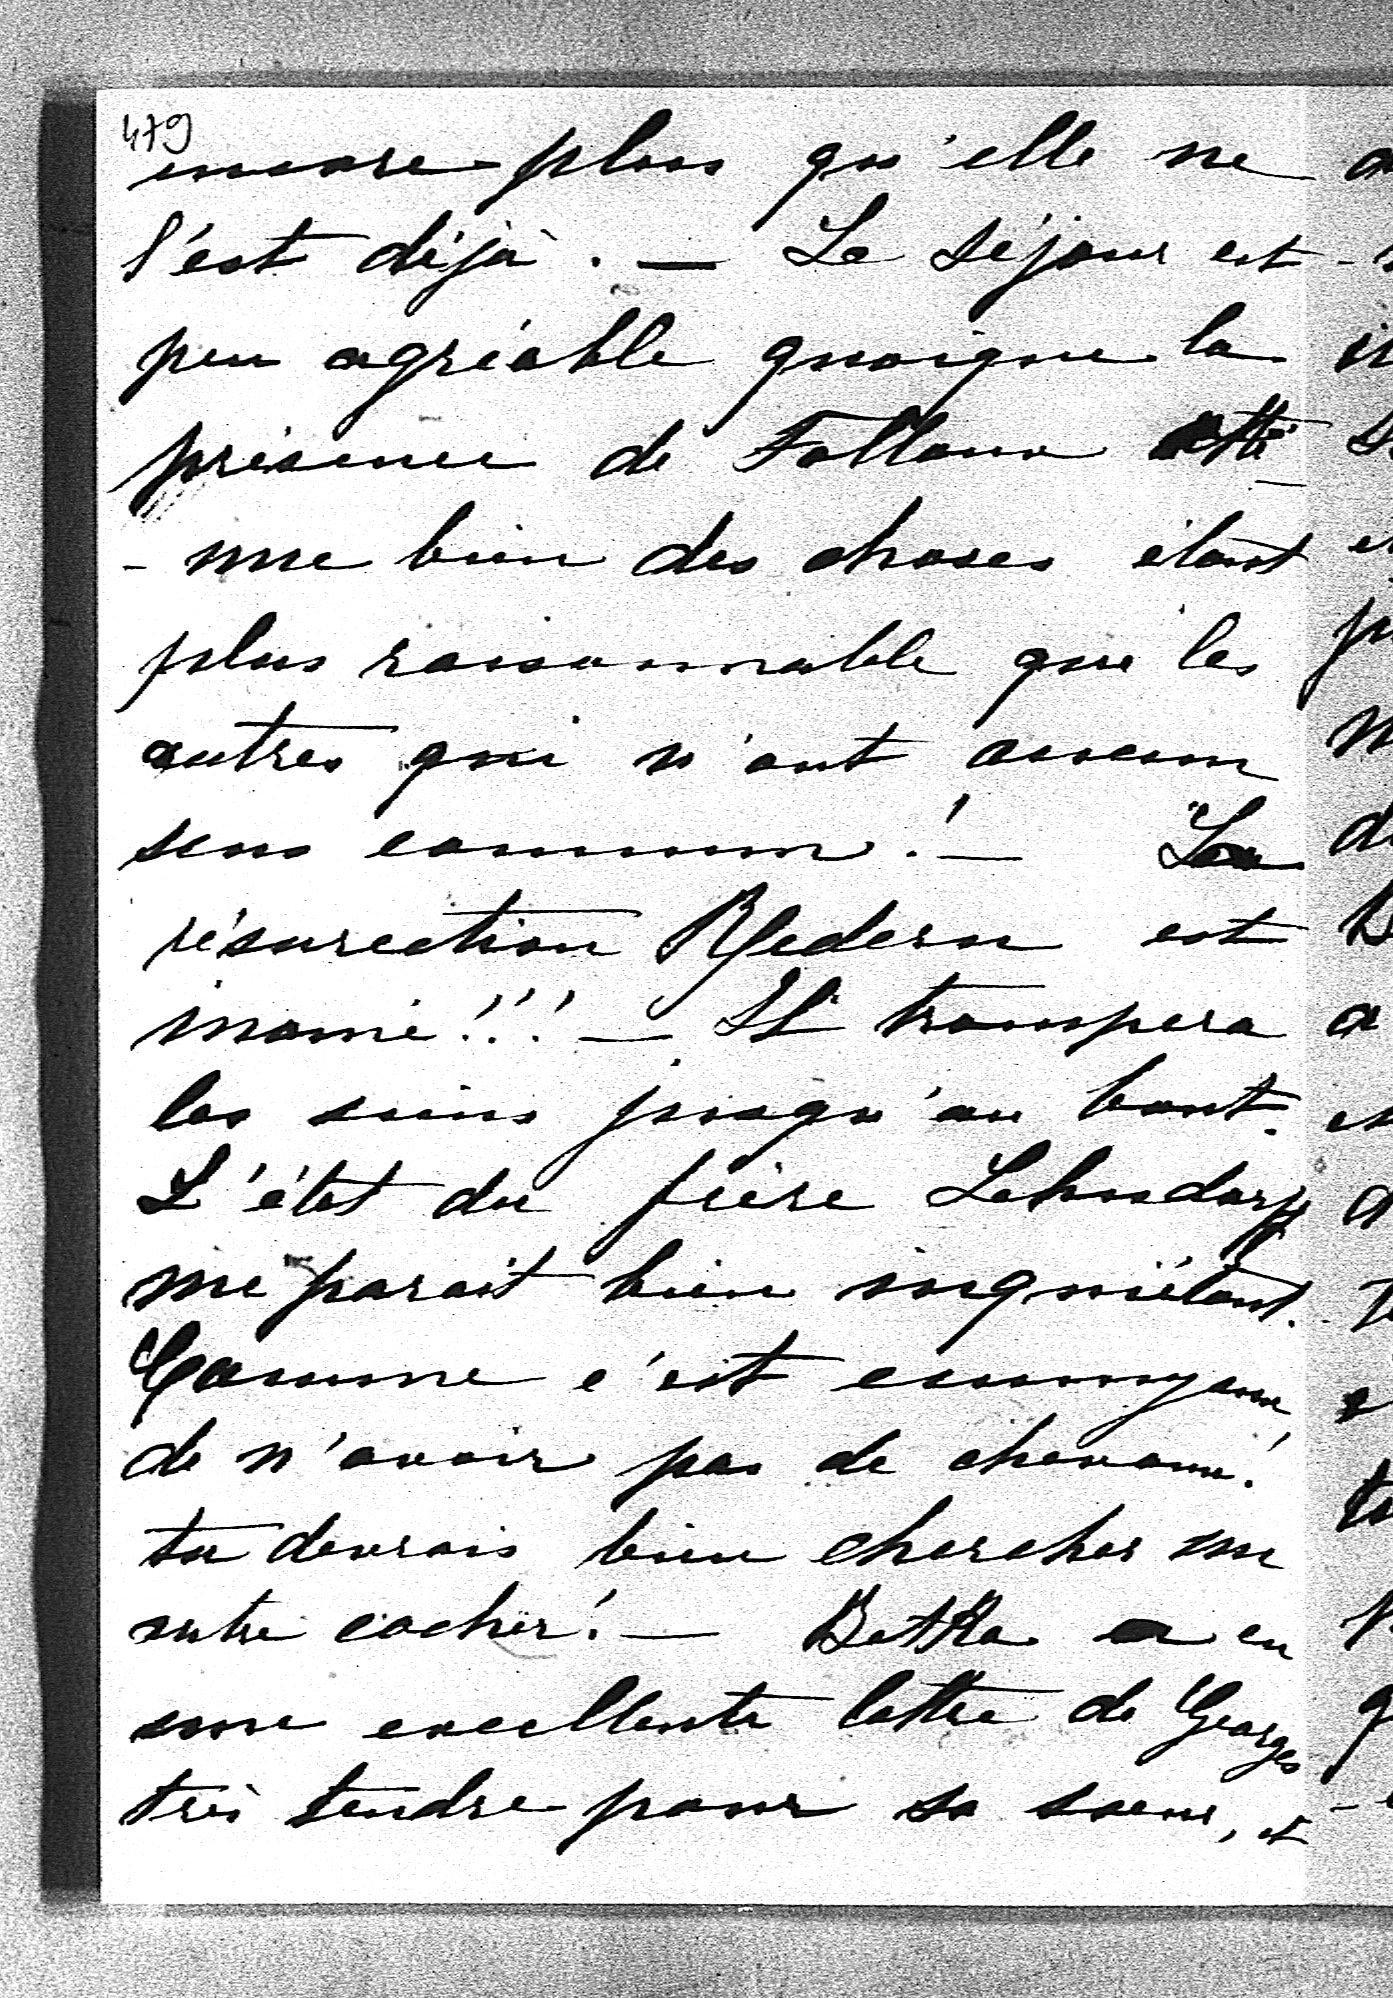 479
encore plus qu'elle ne
l'est déjà. — Le séjour est
peu agréable quoique la
présence de Falloux atté
- nue bien des choses étant
plus raisonnable que les
autres qui n'ont aucun
sens commun! — La
résurection Redern est
inouie!!! — Il trompera
les siens jusqu'au bout.
L'état du frère Lehndorff
me parait bien inquiétant.
Comme c'est ennuyeux
de n'avoir pas de chevaux!
tu devrais bien chercher un
autre cocher! — Betka a eu
une excellente lettre de Georges
très tendre pour sa soeur, et